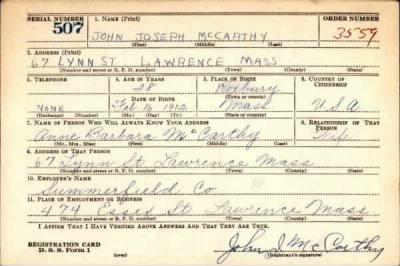 SERIAL NUMBER 1. NAME (Print) ORDER NUMBER
507 JOHN JOSEPH McCARTHY 3559
(First) (Middle) (Last)
2. ADDRESS (Print)
67 LYNN ST. LAWRENCE MASS
(Number and street or R. F. D. number) (Town) (County) (State)
3. TELEPHONE 4. AGE IN YEARS 5. PLACE OF BIRTH 6. COUNTRY OF CITIZENSHIP
28 Roxbury
DATE OF BIRTH (Town or county)
NONE Feb. 16 1912 Mass U.S.A
(Exchange) (Number) (Mo.) (Day) (Yr.) (State or country)
7. NAME OF PERSON WHO WILL ALWAYS KNOW YOUR ADDRESS 8. RELATIONSHIP OF THAT PERSON
Anne Barbara McCarthy Wife
(Mr., Mrs., Miss) (First) (Middle) (Last)
9. ADDRESS OF THAT PERSON
67 Lynn St. Lawrence Mass
(Number and street or R. F. D. number) (Town) (County) (State)
10. EMPLOYER'S NAME
Summerfield Co
11. PLACE OF EMPLOYMENT OR BUSINESS
474 Essex St. Lawrence Mass
(Number and street or R. F. D. number) (Town) (County) (State)
I AFFIRM THAT I HAVE VERIFIED ABOVE ANSWERS AND THAT THEY ARE TRUE.
REGISTRATION CARD John J McCarthy
D. S. S. Form 1 (Registrant's signature)